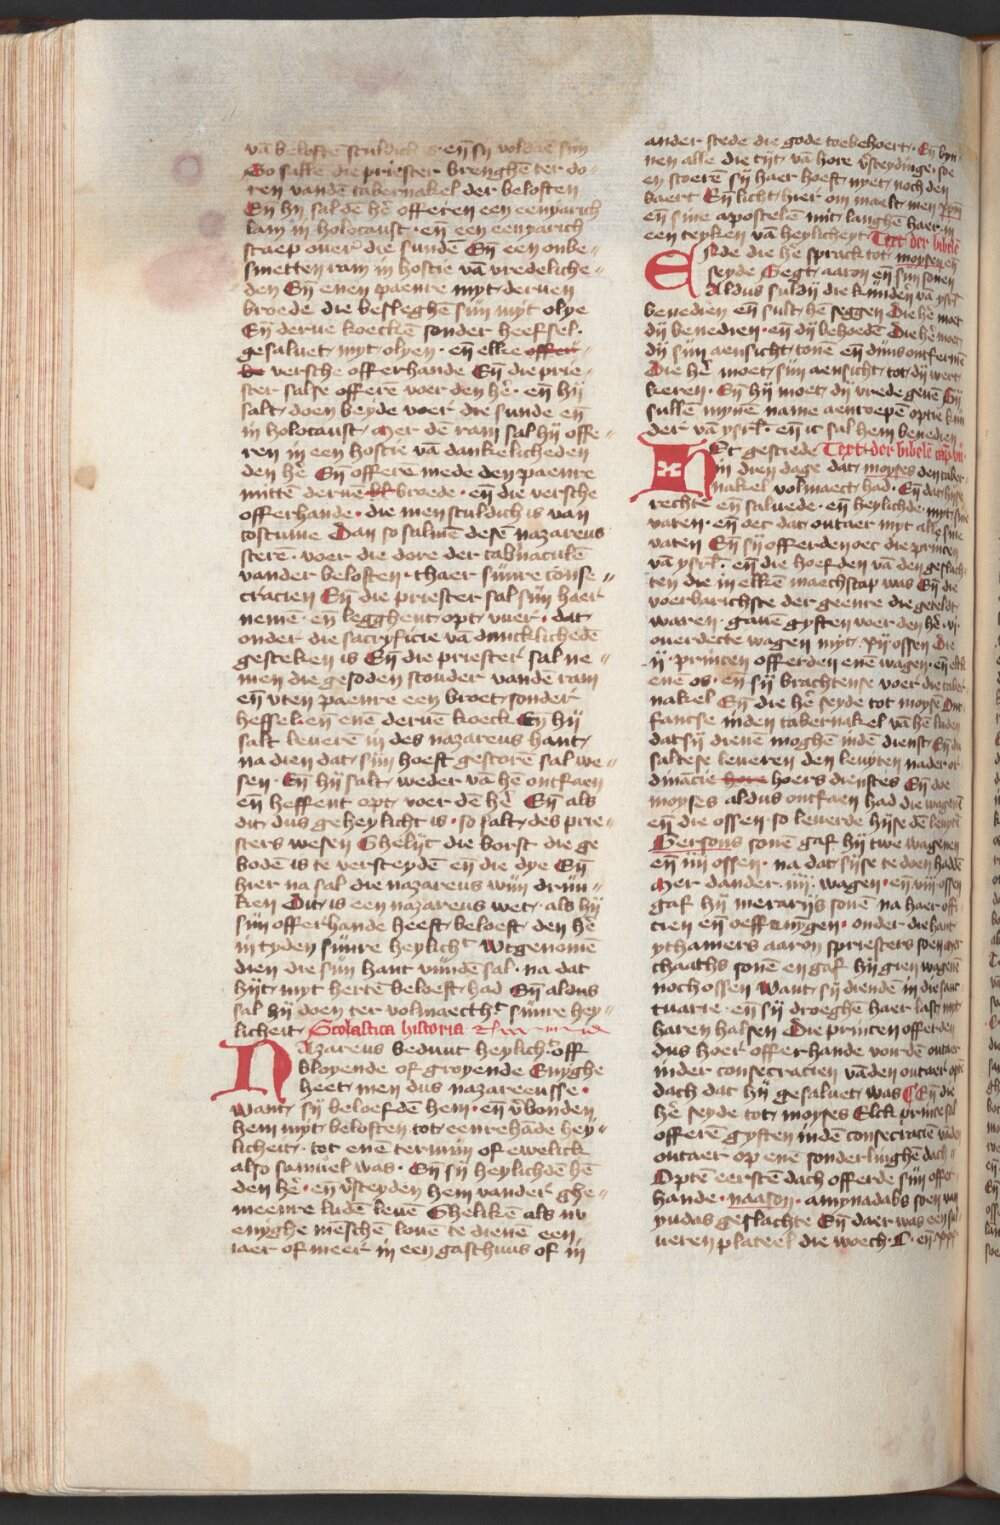 vā beloftē sculdich en̄ sij voldrē sijn
So salse die priester brenghē ter do-
ren vandē tabernakel der beloften
En̄ hij sal dē hē offeren een eenyarich
lam in holocaust · en̄ een eenyarich
scaep ouer die sundē En̄ een onbe-
smetten ram in hostie vā vredeliche-
den En̄ enen paenre myt deruen
broede die besleghē sijn myt olye
En̄ derue koeckē sonder heefsel ·
gesaluet myt olyen · en̄ elke offer-
versche offerhande En̄ die prie-
ster salse offerē voer den hē · en̄ hij
salt doen beyde voer die sunde en̄
in holocaust Mer dē ram sal hij offe-
ren in een hostie vā danckelicheden
den hē En̄ offerē mede den paenre
mittē deruē broede · en̄ die versche
offerhande · die men sculdich is van
costume Dan so salmē desē nazareus
sterē · voer die dore der tabnaculē
vander beloften · thaer sijnre conse-
cracien En̄ die priester sal sijn haer
nemē · en̄ legghent opt vuer · dat
onder die sacryficie vā dancklichedē
gesteken is En̄ die priester sal ne-
men die gesoden scouder vandē ram
en̄ vten paenre een broet sonder
heffsel en̄ enē deruē koeck En̄ hij
salt leuerē in des nazareus hant
na dien dat sijn hoeft gescorē sal we-
sen · En̄ hij salt weder vā hē ontfaen
en̄ heffent opt voer dē hē En̄ als
dit dus geheylicht is · so salt des prie-
sters wesen Ghelijc die borst die ge
bodē is te versceydē en̄ die dye En̄
hier na sal die nazareus wijn drijn-
ken Dit is een nazareus wet · als hij
sijn offerhande heeft beloeft den hē
in tyden sijnre heylicht Wtgenomē
dien die sijn hant vijndē sal · na dat
hijt myt hertē beloeft had En̄ aldus
sal hij doen ter volmaectht sijnre hey-
licheit Scolastica historia
Nazareus beduut heylicht off
bloyende of groyende Enyghe
heet men dus nazareeusse ·
Want sij beloefdē hem · en̄ v̄bonden
hem myt beloften tot eenrehāde hey-
licheit · tot enē termijn of ewelick
also samuel was · En̄ sij heylichdē hē
den hē · en̄ v̄sceyden hem vander ghe-
meenre ludē leuē Ghelikē als nv
enyghe mēschē louē te dienē een
iaer of meer in een gasthuus of in
ander stede die gode toebehoert · En̄ byn-
nen alle die tijt vā hore v̄sceydinge · soe
en scoerē sij haer hoeft nyet noch den
baert En̄ licht hier om maelt men xp̄m
en̄ sine apostelē mit langhē haer in
een teyken vā heylicheyt Text der bibelē
Ende die hē sprack tot moysen en̄
seyde Segt aaron en̄ sijn sonen
Aldus suldij die kijnderē vā ysrl
benedien en̄ sult hē seggen Die hē moet
dij benedien · en̄ dij behoedē Die hē moet
dij sijn aensicht tonē en̄ dijns ontfermē
Die hē moet sijn aensicht tot dij wert
kieren · En̄ hij moet dij vrede geuē Sij
sullē mynē name aenroepē optie kijn
der vā ysrl · en̄ ic sal hem benedien
Het gesciede Text der bibelē
in dien dage dat moyses den taber
nakel volmaect had · En̄ dat hijse
rechte en̄ saluede · en̄ heylichde myt sine
vaten · en̄ oec dat outaer myt alle sine
vaten En̄ sij offerden oec die princen
vā ysrl · en̄ die hoefden vā den geslach-
ten die in elkē maechscap was En̄ die
voerbarichste der geenre die getelt
waren · gauē gyften voer den hē · vi ·
ouerdecte wagen myt · xij · ossen Die
ij · princen offerden enē wagen · en̄ elck
enē os · en̄ sij brachtense voer die taber
nakel En̄ die hē seyde tot moysē Ont-
fancse inden tabernakel vā hē luden
dat sij dienē moghē indē dienst En̄ du
saltese leueren den leuyten na der or-
dinācie hoers dienstes En̄ doe
moyses aldus ontfaen had die wagenē
en̄ die ossen · so leuerde hijse dē leuytē
Gersons sonē gaf hij twe wagenen
en̄ iiij ossen · na dat sijse te doen haddē
Mer dander · iiij · wagen · en̄ viij ossen
gaf hij merarijs sonē na haer offi-
cien en̄ oeffenijngen · onder die hant
ythamers aaron spriesters soen Mer
chaaths sonē en gaf hij gien wagenē
noch ossen Want sij diendē in die sanc-
tuarie · en̄ sij droeghē haer last myt
haren halsen Die princen offerden
dus hoer offerhande voir dē outaer
in der consecracien vā den outaer optē
dach dat hij gesaluet was En̄ die
hē seyde tot moyses Elck prince sal
offerē gyften indē consecraciē vādē
outaer op enē sonderlinghē dach
Optē eerstē dach offerde sijn offer-
hande · naason · amynadabs soen van
yudas geslachte En̄ daer was een sil-
ueren plateel die woech · C · en̄ xxx